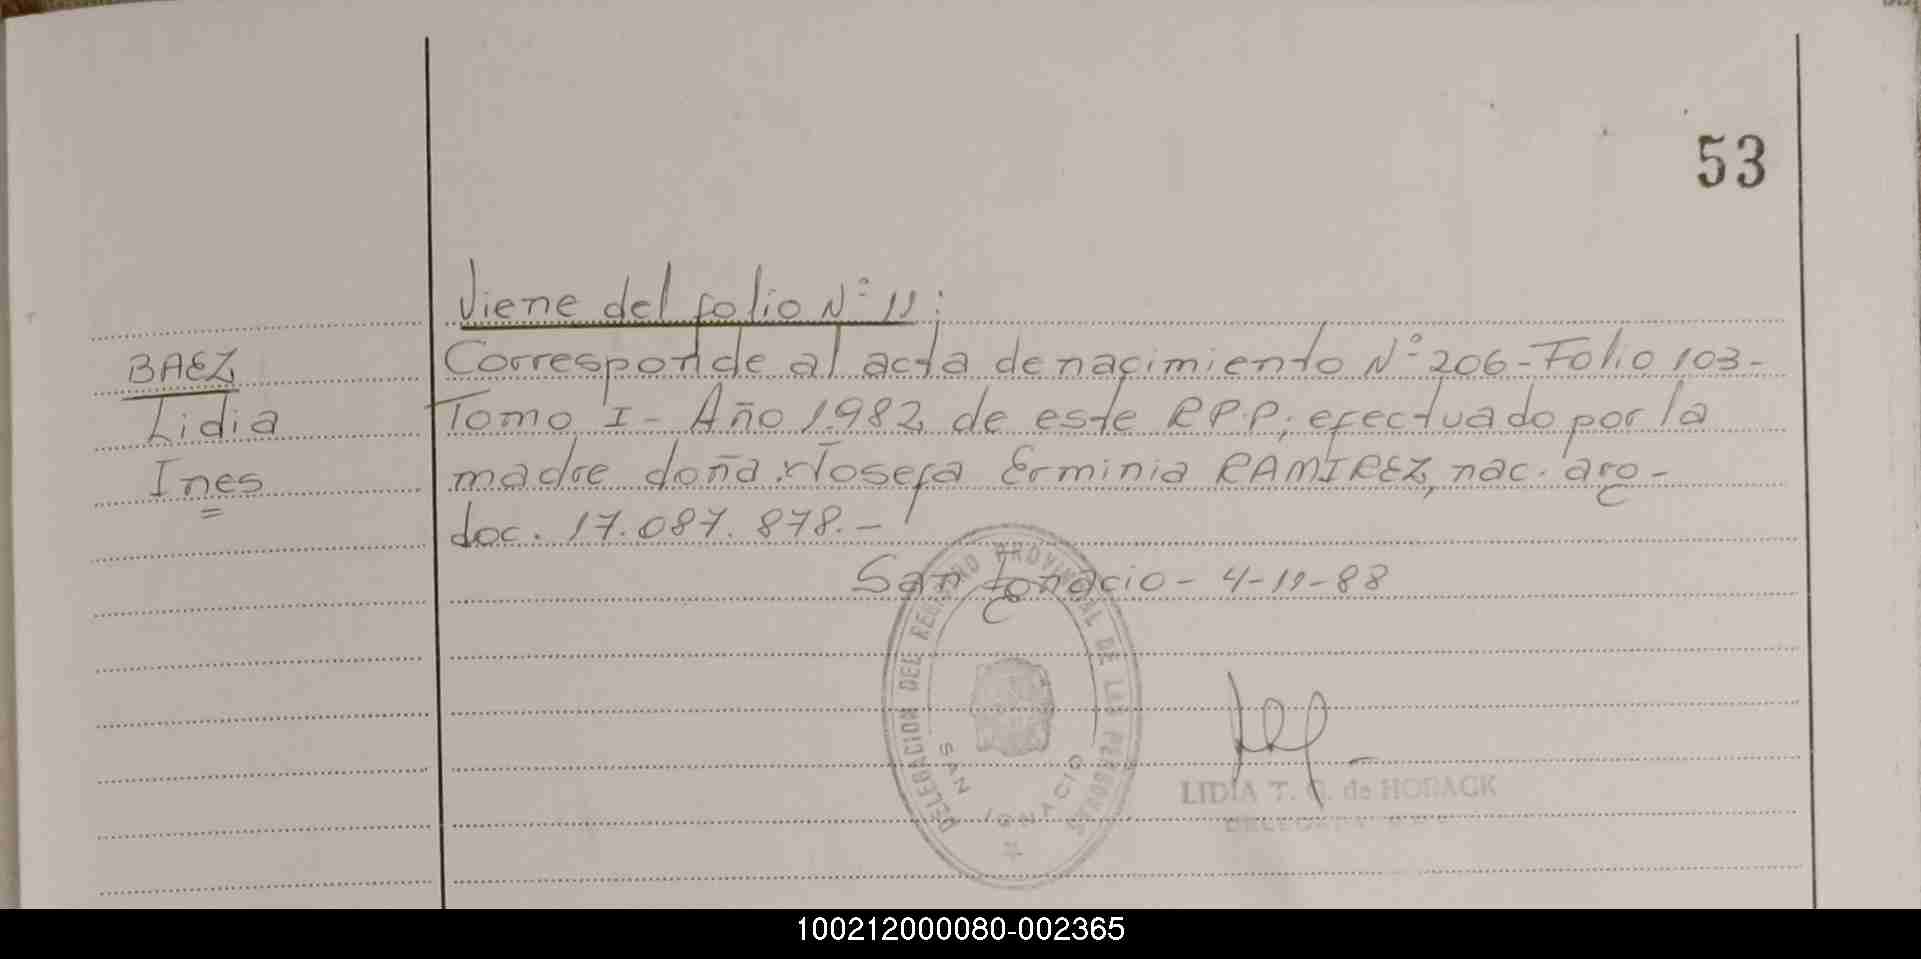 53
Viene del folio N° 11:
BAEZ
Lidia
Ines
Corresponde al acta de nacimiento N° 206 - Folio 103 -
Tomo I - Año 1.982, de este RPP, efectuado por la
madre doña Josefa Erminia RAMIREZ, nac. arg -
doc. 17.087.878. -
San Ignacio - 4-11-88
DELEGACION DEL REGISTRO PROVINCIAL DE LAS PERSONAS
SAN IGNACIO
LIDIA T. G. de HORACK
DELEGADA
100212000080-002365